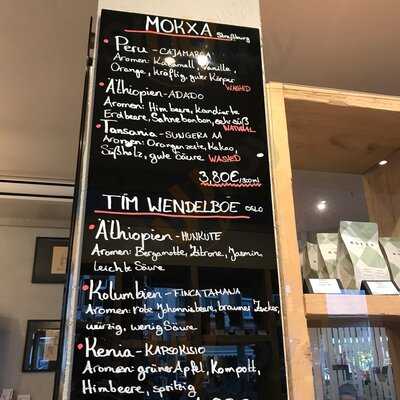 MOKXA Straßburg
Peru - CAJAMARCA
Aromen: Karamell, Vanille,
Orange, kräftig, guter Körper
WASHED
Äthiopien - ADADO
Aromen: Himbeere, kandierte
Erdbeere, Sahnebonbon, sehr süß
NATURAL
Tansania - SUNGERA AA
Aromen: Orangenzeste, Kakao,
Süßholz, gute Säure WASHED
3,80€/300ml
TIM WENDELBOE OSLO
Äthiopien - HUNKUTE
Aromen: Bergamotte, Zitrone, Jasmin,
leichte Säure
Kolumbien - FINCA TAMANA
Aromen: rote Johannisbeere, brauner Zucker,
würzig, wenig Säure
Kenia - KARGOKISIO
Aromen: grüner Apfel, Kompott,
Himbeere, spritzig